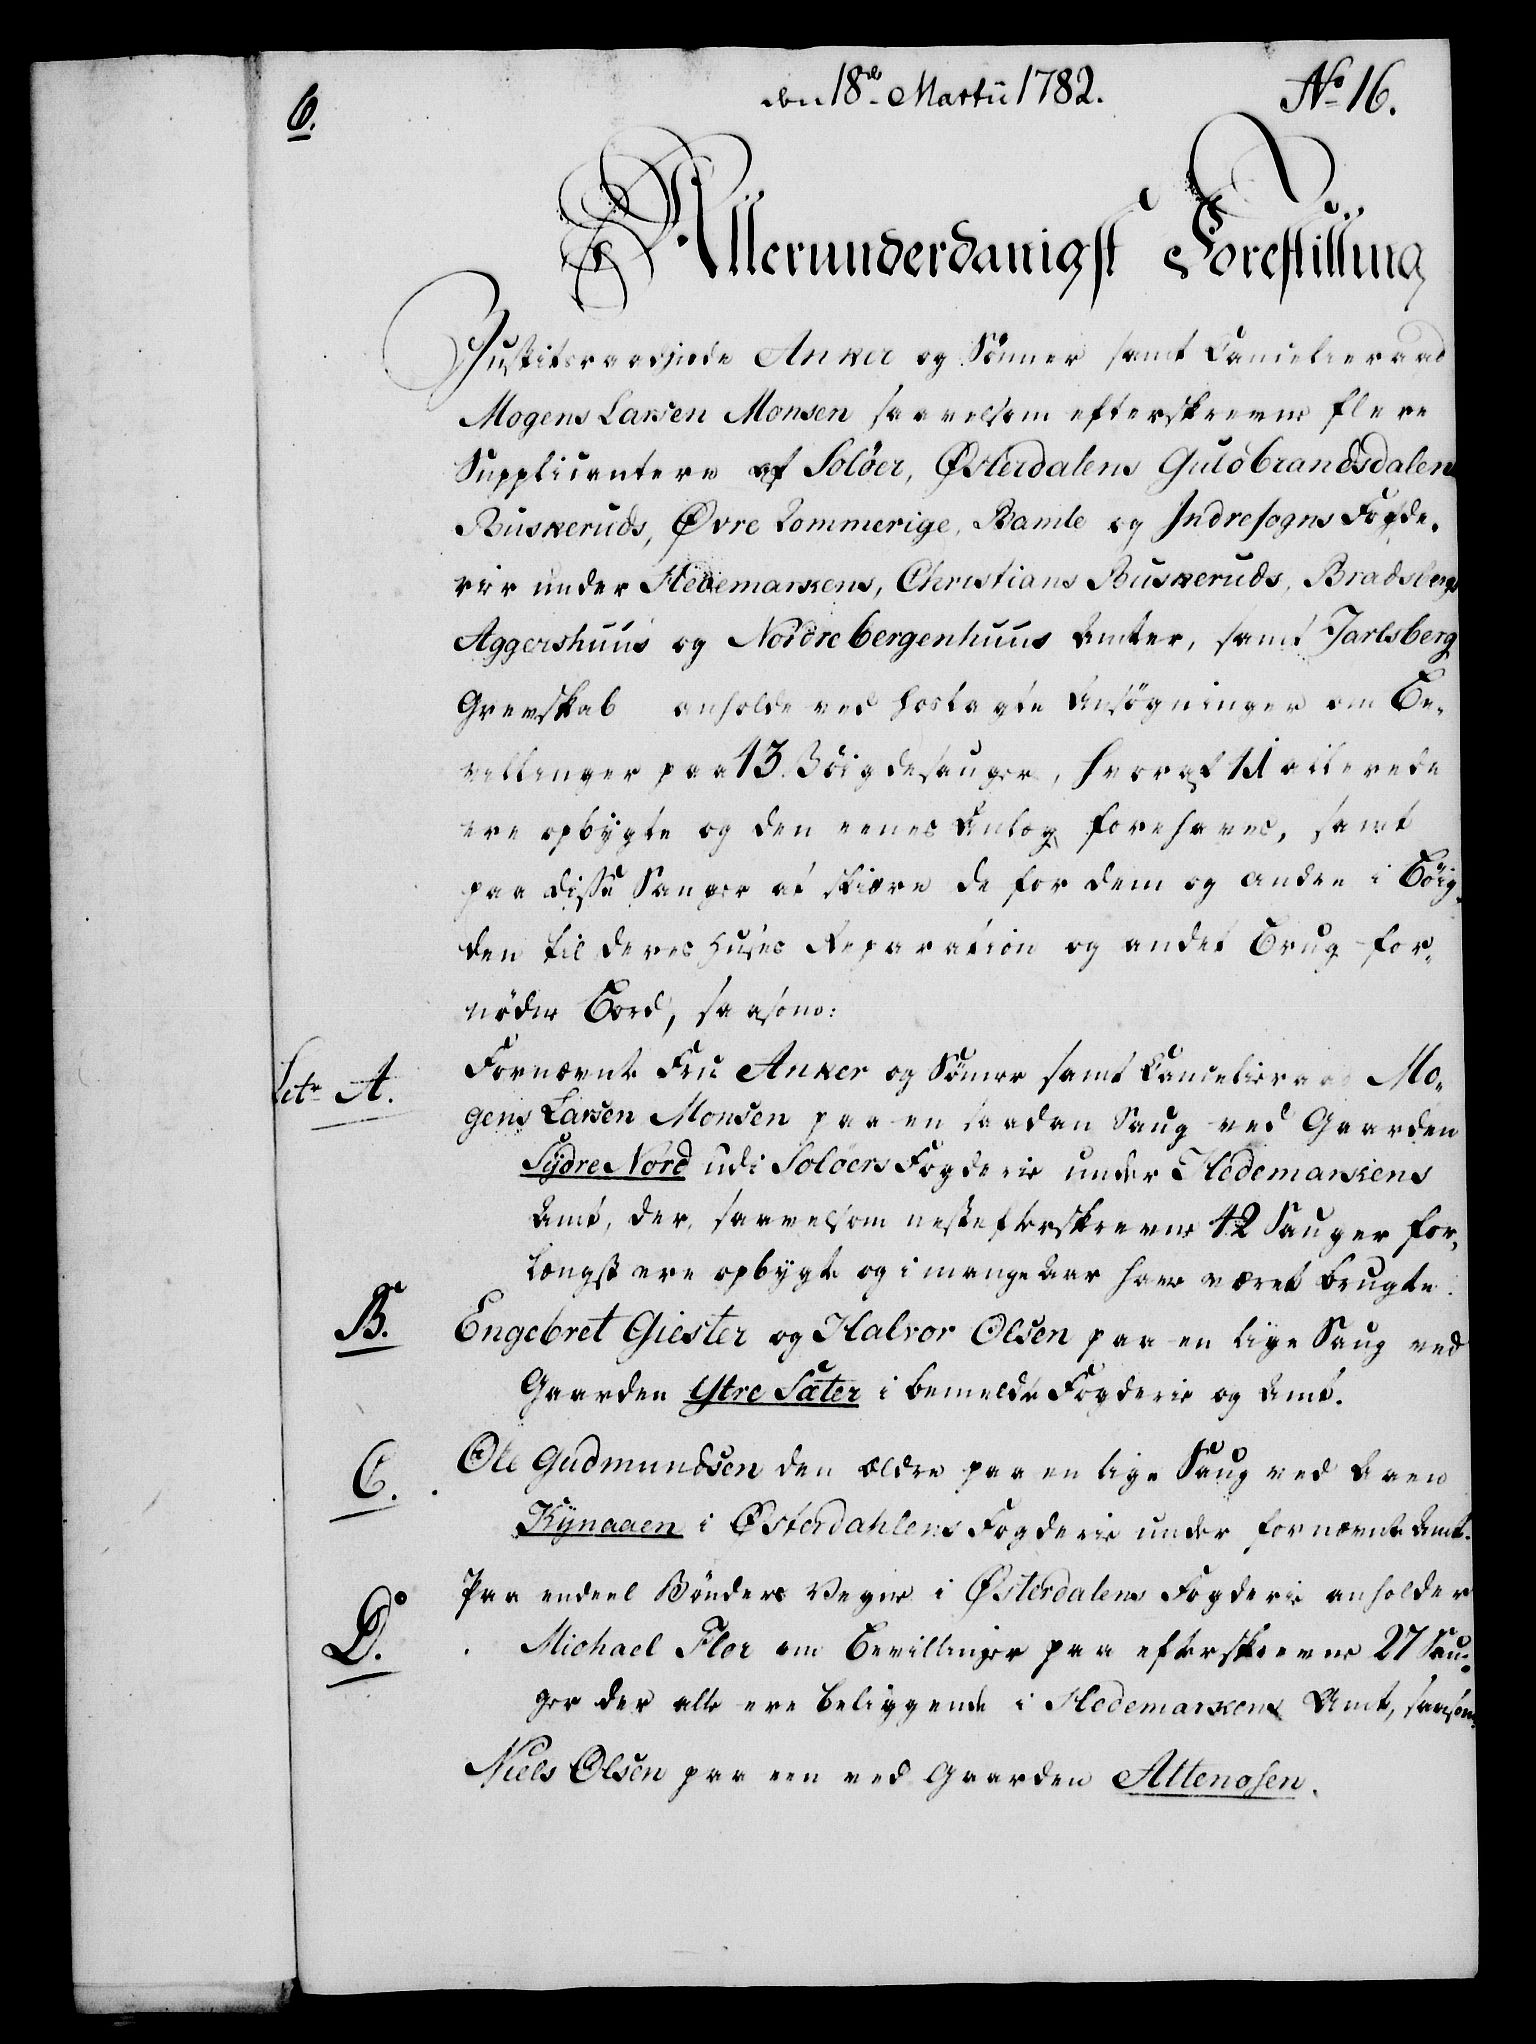 6.
den 18de Martii 1782.
No 16.
Allerunderdanigst Forestilling
Justitsraadinde Anker og Sönner samt Cancelieraad
Mogens Larsen Monsen saavelsom efterskrevne flere
Supplicantere af Solöer, Østerdalens Guldbrandsdalens
Buskeruds, Øvre Rommerige, Bamle og Indresogns Fogde-
rier under Hedemarkens, Christians Buskeruds, Bradsbergs
Aggershuus og Nordrebergenhuus Amter, samt Jarlsberg
Grevskab anholde ved hoslagte Ansögninger om Be-
villinger paa 43 Böigdesauger, hvoraf 41 allerede
ere opbygte og den eenes Anlæg forehaves, samt
paa disse Sauger at skiære de for dem og andre i Böig-
den til deres Huses Reparation og andet Brug for-
nödne Bord, saasom:
Litr A.
Fornævnte Fru Anker og Sönner samt Cancelieraad Mo-
gens Larsen Monsen paa en saadan Saug ved Gaarden
Sydre Nord udi Solöers Fogderie under Hedemarkens
Amt, der, saavelsom nestefterskrevne 42 Sauger for-
længst ere opbygte og i mange Aar have været brugte.
B.
Engebret Giester og Halvor Olsen paa en lige Saug ved
Gaarden Ytre Sæter i bemeldte Fogderie og Amt.
C.
Ole Gudmundsen den ældre paa en lige Saug ved Aaen
Kynaaen i Østerdahlens Fogderie under fornævnte Amt.
D.
Paa endeel Bönders Vegne i Østerdalens Fogderie anholder
Michael Flor om Bevillinger paa efterskrevne 27 Sau-
ger der alle ere beliggende i Hedemarkens Amt, saasom
Niels Olsen paa een ved Gaarden Attenosen.